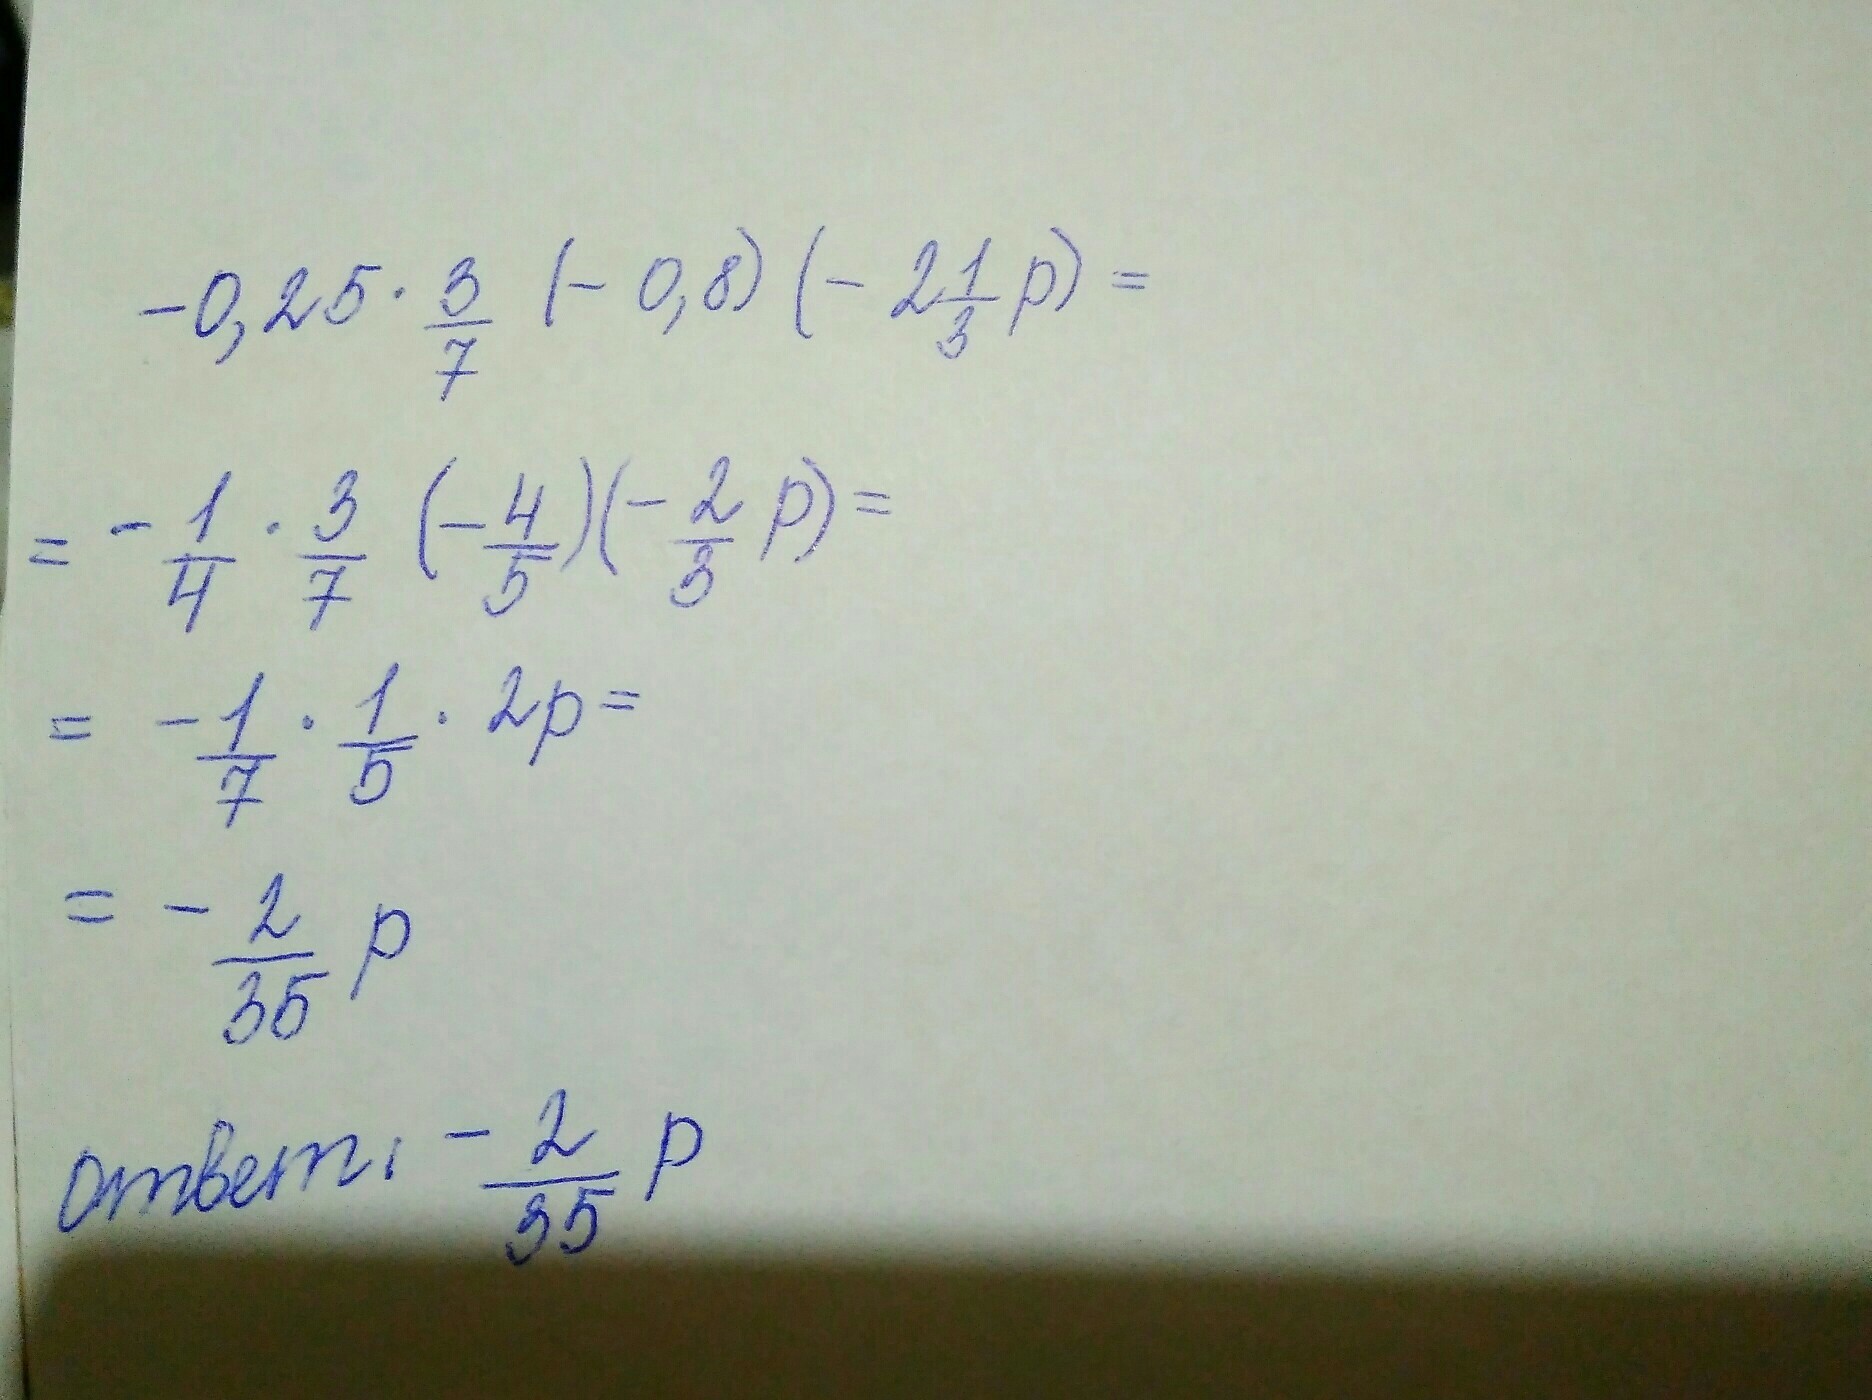 -0,25 · 3/7 (-0,8) (-2 1/3 p) =
= -1/4 · 3/7 (-4/5)(-2/3 p) =
= -1/7 · 1/5 · 2p =
= -2/35 p
ответ: -2/35 p